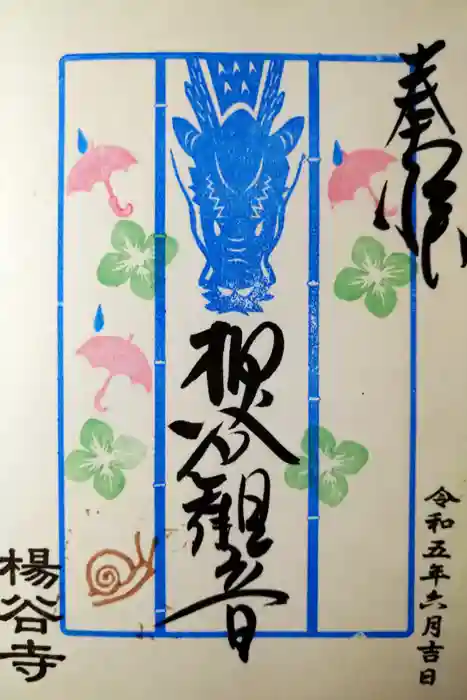 奉拝
柳谷観音
令和五年六月吉日
楊谷寺